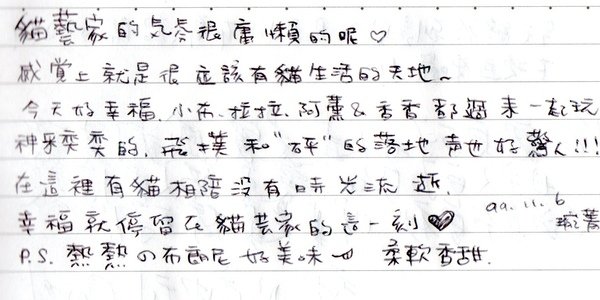 貓藝家的気氛很慵懶的呢♡
感覚上就是很應該有貓生活的天地~
今天好幸福,小布、拉拉、阿薰&香香都過來一起玩
神采奕奕的,飛撲和"砰"的落地声也好驚人!!!
在這裡有貓相陪没有時光流逝,
幸福就停留在貓芸家的這一刻♥ 99.11.6
P.S. 熱熱の布朗尼好美味 柔軟香甜.